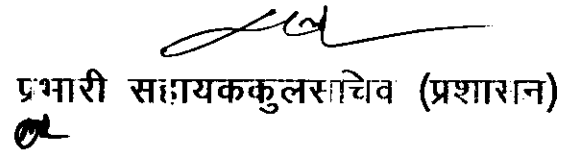 प्रभारी सहायककुलसचिव (प्रशासन)